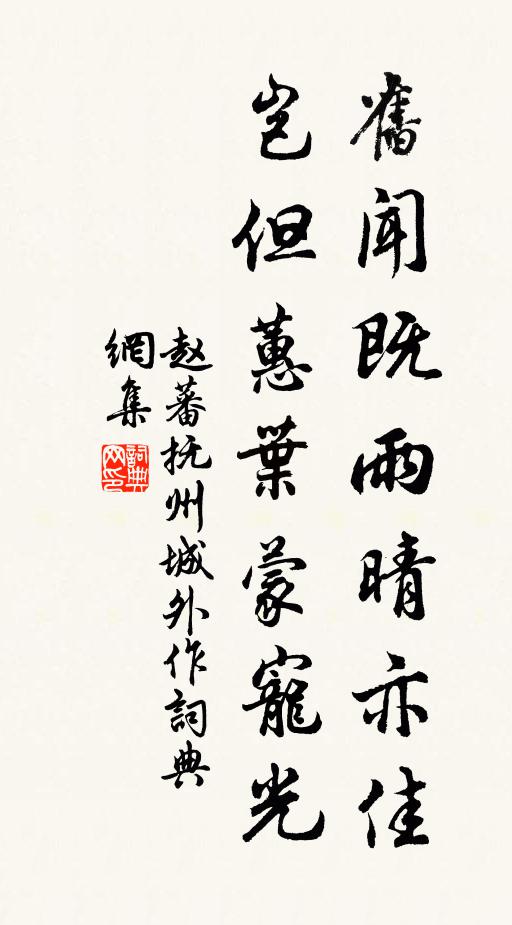 舊聞既雨晴亦佳
豈但蕙葉蒙寵光
赵蕃抚州城外作詞典
網集
詞典网印